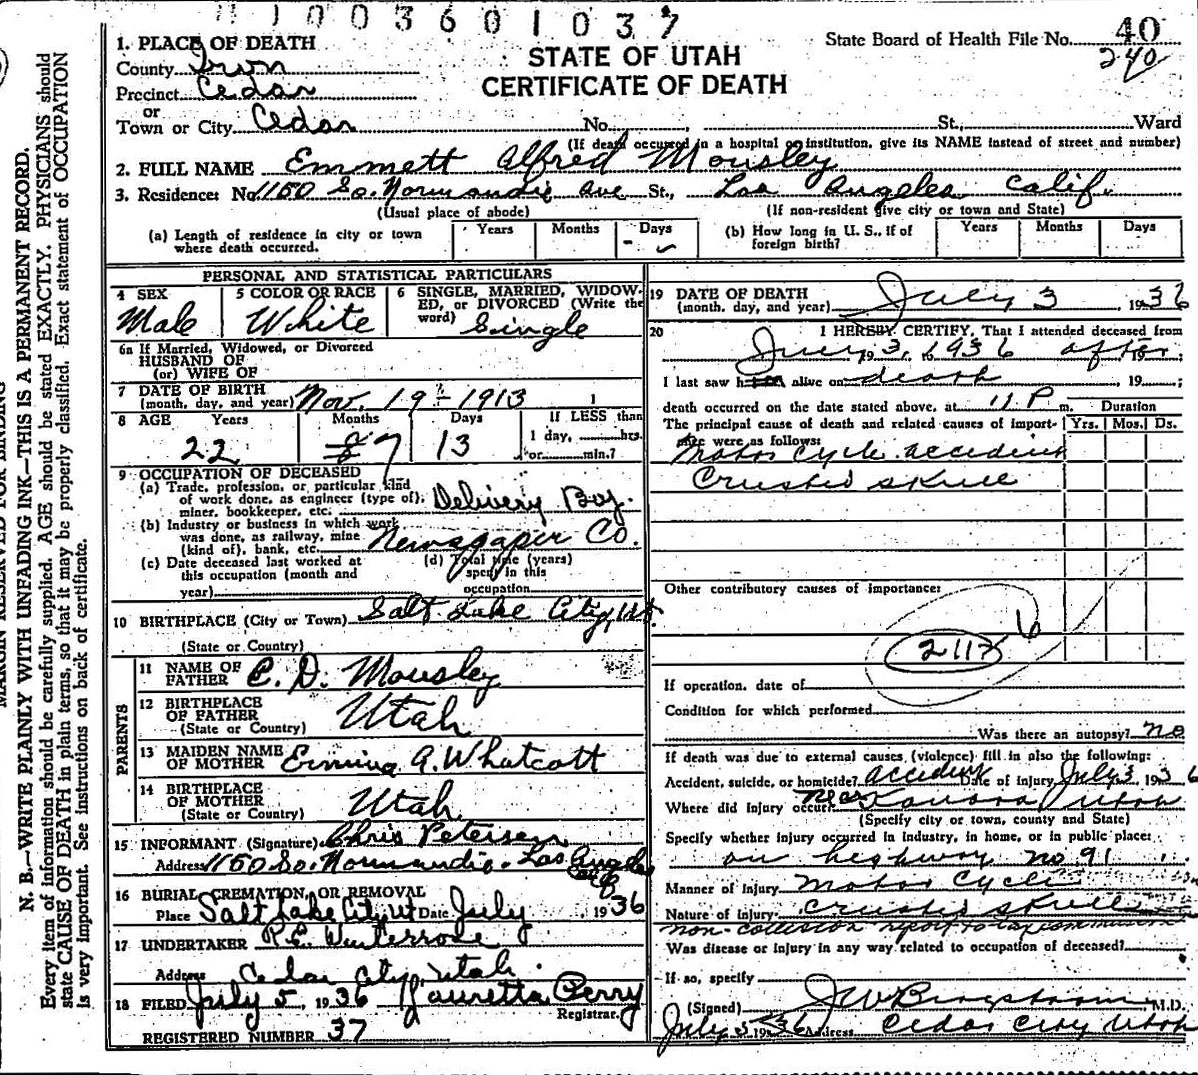 1003601037
40
State Board of Health File No.
240
STATE OF UTAH
CERTIFICATE OF DEATH
1. PLACE OF DEATH
County Iron
Precinct Cedar
or
Town or City Cedar No. St., Ward
(If death occurred in a hospital or institution, give its NAME instead of street and number)
2. FULL NAME Emmett Alfred Mousley
3. Residence: No. 1150 So. Normandie Ave St., Los Angeles Calif.
(Usual place of abode) (If non-resident give city or town and State)
(a) Length of residence in city or town where death occurred. Years Months Days
(b) How long in U. S., if of foreign birth? Years Months Days
PERSONAL AND STATISTICAL PARTICULARS
4 SEX Male
5 COLOR OR RACE White
6 SINGLE, MARRIED, WIDOWED, or DIVORCED (Write the word) Single
6a If Married, Widowed, or Divorced
HUSBAND OF
(or) WIFE OF
7 DATE OF BIRTH
(month, day, and year) Nov. 19 - 1913
8 AGE Years Months Days If LESS than
22 7 13 1 day, hrs.
or min.?
9 OCCUPATION OF DECEASED
(a) Trade, profession, or particular kind
of work done, as engineer (type of),
miner, bookkeeper, etc. Delivery Boy.
(b) Industry or business in which work
was done, as railway, mine
(kind of), bank, etc. Newspaper Co.
(c) Date deceased last worked at
this occupation (month and
year)
(d) Total time (years)
spent in this
occupation
10 BIRTHPLACE (City or Town) Salt Lake City, Ut.
(State or Country)
PARENTS
11 NAME OF
FATHER C. D. Mousley
12 BIRTHPLACE
OF FATHER Utah
(State or Country)
13 MAIDEN NAME
OF MOTHER Ermina A. Whatcott
14 BIRTHPLACE
OF MOTHER Utah
(State or Country)
15 INFORMANT (Signature) Chris Petersen
Address 1150 So. Normandie. Los Angeles
Calif
16 BURIAL, CREMATION, OR REMOVAL
Place Salt Lake City Ut Date July 1936
17 UNDERTAKER P.E. Winterrose
Address Cedar City, Utah.
18 FILED July 5, 1936 Lauretta Perry
Registrar.
REGISTERED NUMBER 37
19 DATE OF DEATH
(month, day, and year) July 3, 1936
20 I HEREBY CERTIFY, That I attended deceased from
July 3, 1936 after
I last saw h alive on death, 19 ;
death occurred on the date stated above, at 11 P m. Duration
The principal cause of death and related causes of importance were as follows: Yrs. Mos. Ds.
Motor Cycle accident
Crushed skull
Other contributory causes of importance:
6
If operation, date of
Condition for which performed
Was there an autopsy? no
If death was due to external causes, (violence) fill in also the following:
Accident, suicide, or homicide? accident Date of injury July 3, 1936
Where did injury occur? near Kanarra Utah
(Specify city or town, county and State)
Specify whether injury occurred in industry, in home, or in public place:
on highway no 91
Manner of Injury Motor Cycle
Nature of injury Crushed skull
non-collision report to tax commission
Was disease or injury in any way related to occupation of deceased?
If so, specify
(Signed) J W Bergstrom M.D.
July 5 1936 Address Cedar City Utah
MARGIN RESERVED FOR BINDING
N. B.—WRITE PLAINLY WITH UNFADING INK—THIS IS A PERMANENT RECORD.
Every item of information should be carefully supplied. AGE should be stated EXACTLY. PHYSICIANS should
state CAUSE OF DEATH in plain terms, so that it may be properly classified. Exact statement of OCCUPATION
is very important. See instructions on back of certificate.